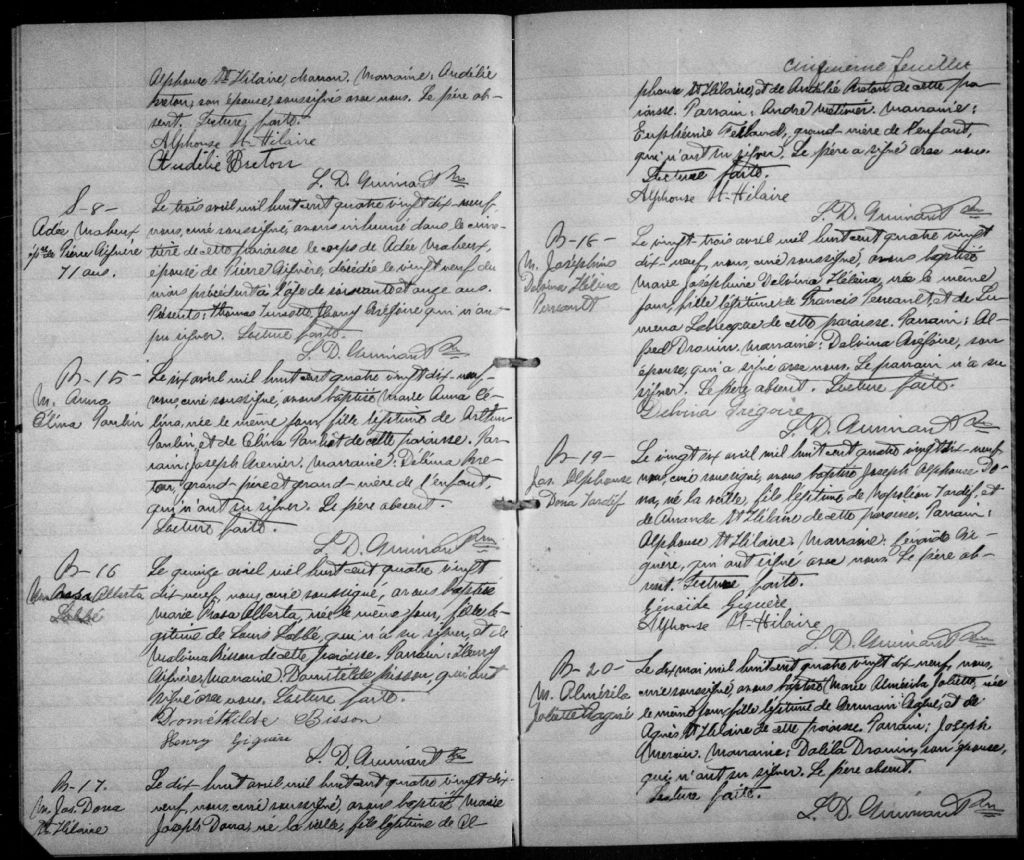 Alphonse St Hilaire, charron. Marraine: Audélie
Breton, son épouse, soussignés avec nous. Le père ab-
sent. Lecture faite.
Alphonse St-Hilaire
Audélie Breton
L. D. Guimont Ptre
S-8-
Adée Mabeux
épse de Pierre Giguère
71 ans.
Le trois avril mil huit cent quatre vingt dix-neuf
nous, curé soussigné, avons inhumé dans le cime-
tière de cette paroisse le corps de Adée Mabeux,
épouse de Pierre Giguère, décédée le vingt neuf du
mois précédent à l'âge de soixante et onze ans.
Présents: Thomas Turcotte, Grégoire qui n'ont
pu signer. Lecture faite.
L. D. Guimont Ptre
B-15-
M. Anna
Célina Poulin
Le six avril mil huit cent quatre vingt dix-neuf
nous, curé soussigné, avons baptisé Marie Anna Cé-
lina, née le même jour, fille légitime de Arthur
Poulin, et de Clina de cette paroisse. Par-
rain: Joseph Mercier. Marraine: Délina Bre-
ton, grand-père et grand-mère de l'enfant,
qui n'ont su signer. Le père absent.
Lecture faite.
L. D. Guimont Ptre
B-16
Rosa Alberta
Labbé
Le quinze avril mil huit cent quatre vingt
dix-neuf, nous, curé soussigné, avons baptisé
Marie Rosa Alberta, née le même jour, fille lé-
gitime de Louis Labbé, qui n'a su signer, et de
Malvina Bisson de cette paroisse. Parrain: Henry
Giguère, Marraine: Bisson, qui ont
signé avec nous. Lecture faite.
Dométhilde Bisson
Henry Giguère
L. D. Guimont Ptre
B-17.
M. Jos. Dona
St Hilaire
Le dix huit avril mil huit cent quatre vingt dix
neuf, nous, curé soussigné, avons baptisé Marie
Joseph Dona, né la veille, fils légitime de Al-
Cinquième feuillet
phonse St Hilaire, et de Audélie Breton de cette pa-
roisse. Parrain: André Métivier. Marraine:
Euphémie Ferland, grand-mère de l'enfant,
qui n'ont su signer. Le père a signé avec nous.
Lecture faite.
Alphonse St-Hilaire
L. D. Guimont Ptre
B-18-
M. Joséphine
Delvina Héléna
Perreault
Le vingt-trois avril mil huit cent quatre vingt
dix-neuf, nous, curé soussigné, avons baptisé
Marie Joséphine Delvina Héléna, née le même
jour, fille légitime de Francis Perreault, et de Lu-
mena Labrecque de cette paroisse. Parrain: Al-
fred Drouin. Marraine: Delvina Grégoire, son
épouse, qui a signé avec nous. Le parrain n'a su
signer. Le père absent. Lecture faite.
Delvina Grégoire
L. D. Guimont Ptre
B-19-
Jos. Alphonse
Dona Tardif
Le vingt six avril mil huit cent quatre vingt dix-neuf
nous, curé soussigné, avons baptisé Joseph Alphonse Do-
na, né la veille, fils légitime de Napoléon Tardif, et
de Amanda St Hilaire de cette paroisse. Parrain:
Alphonse St Hilaire. Marraine: Zénaïde Gi-
guère, qui ont signé avec nous. Le père ab-
sent. Lecture faite.
Zénaïde Giguère
Alphonse St-Hilaire
L. D. Guimont Ptre
B-20-
M. Almérila
Joliette Gagné
Le dix mai mil huit cent quatre vingt dix-neuf, nous,
curé soussigné, avons baptisé Marie Almérila Joliette, née
le même jour, fille légitime de Germain Gagné, et de
Agnès St Hilaire de cette paroisse. Parrain: Joseph
Mercier. Marraine: Dalila Drouin, son épouse,
qui n'ont su signer. Le père absent.
Lecture faite.
L. D. Guimont Ptre